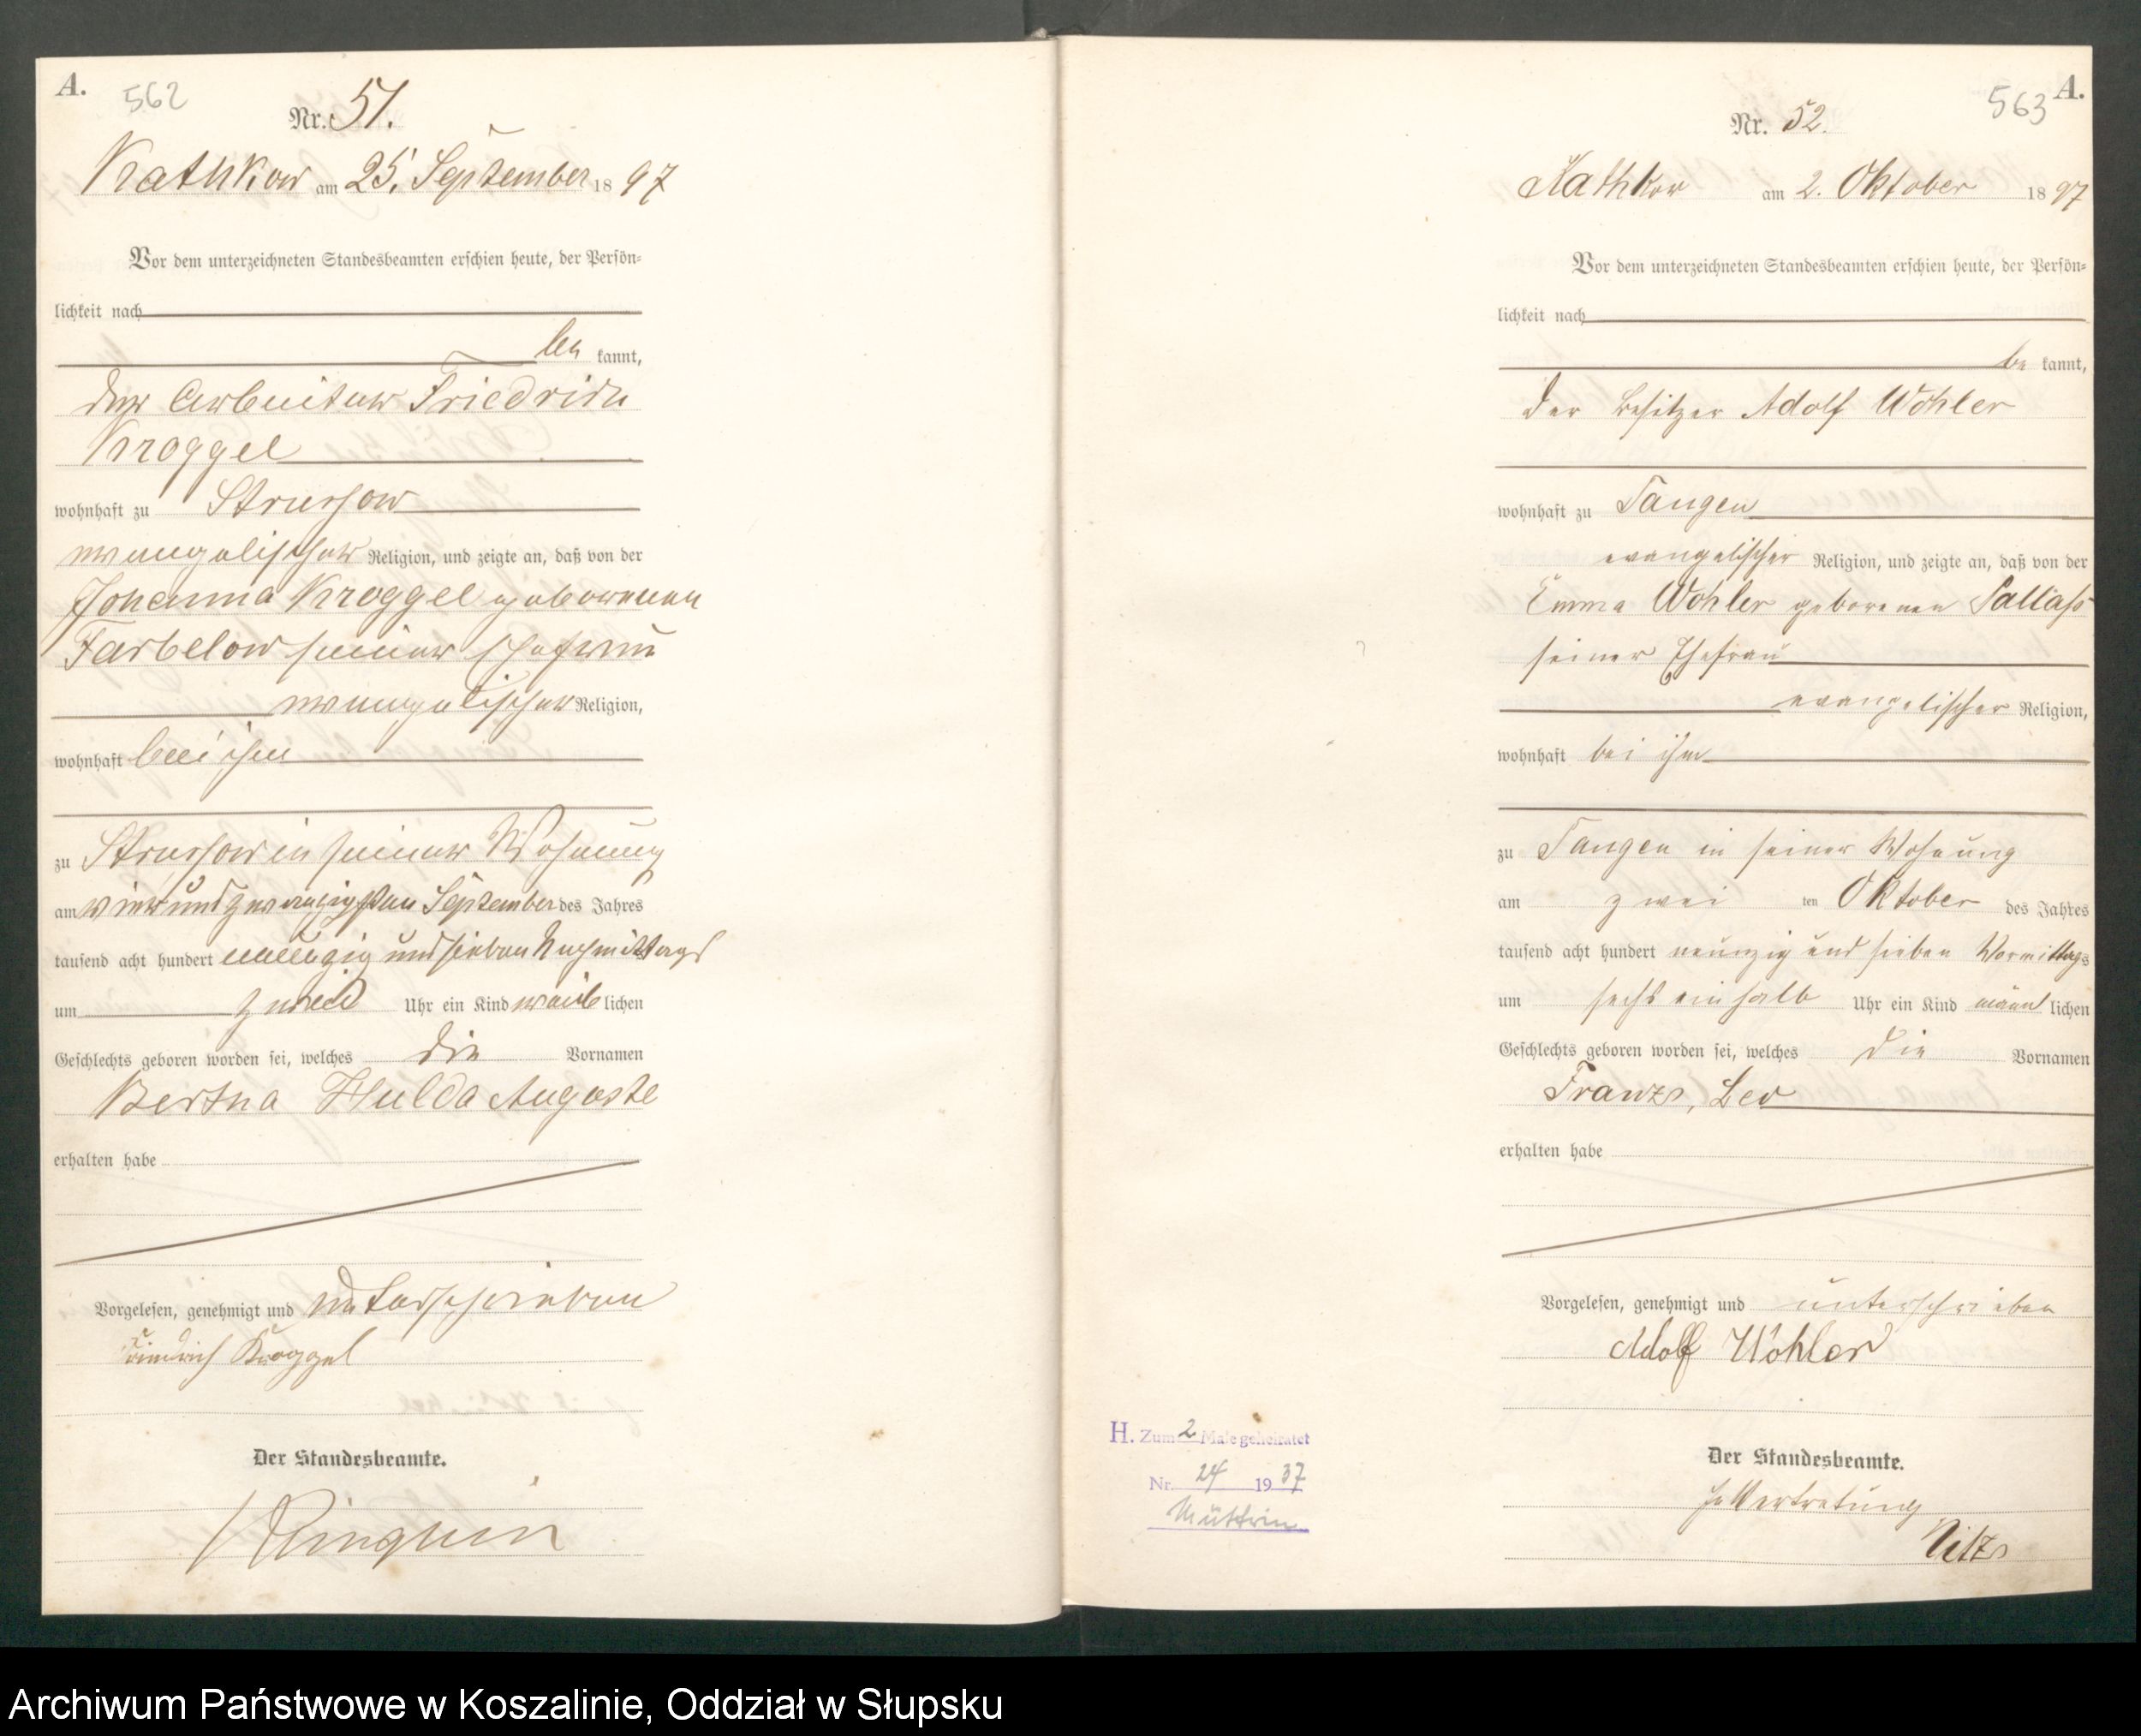 A.
562
Nr. 51.
Kathkow am 25. September 1897
Vor dem unterzeichneten Standesbeamten erschien heute, der Persön-
lichkeit nach
be kannt,
der Arbeiter Friedrich
Kroggel
wohnhaft zu Strussow
evangelischer Religion, und zeigte an, daß von der
Johanna Kroggel geborenen
Farbelow seiner Ehefrau
evangelischer Religion,
wohnhaft bei ihm
zu Strussow in seiner Wohnung
am vierundzwanzigsten September des Jahres
tausend acht hundert neunzig und sieben Nachmittags
um zwei Uhr ein Kind weiblichen
Geschlechts geboren worden sei, welches die Vornamen
Bertha Hulda Auguste
erhalten habe
Vorgelesen, genehmigt und unterschrieben
Friedrich Kroggel
Der Standesbeamte.
A.
563
Nr. 52.
Kathkow am 2. Oktober 1897
Vor dem unterzeichneten Standesbeamten erschien heute, der Persön-
lichkeit nach
be kannt,
der Besitzer Adolf Wöhler
wohnhaft zu Tangen
evangelischer Religion, und zeigte an, daß von der
Emma Wöhler geborenen Pallaß
seiner Ehefrau
evangelischer Religion,
wohnhaft bei ihm
zu Tangen in seiner Wohnung
am zwei ten Oktober des Jahres
tausend acht hundert neunzig und sieben Vormittags
um sechs ein halb Uhr ein Kind männlichen
Geschlechts geboren worden sei, welches die Vornamen
Franz, Leo
erhalten habe
Vorgelesen, genehmigt und unterschrieben
Adolf Wöhler
Der Standesbeamte.
In Vertretung
Nitz
H. Zum 2 Male geheiratet
Nr. 24 1937
Müttrin
Archiwum Państwowe w Koszalinie, Oddział w Słupsku